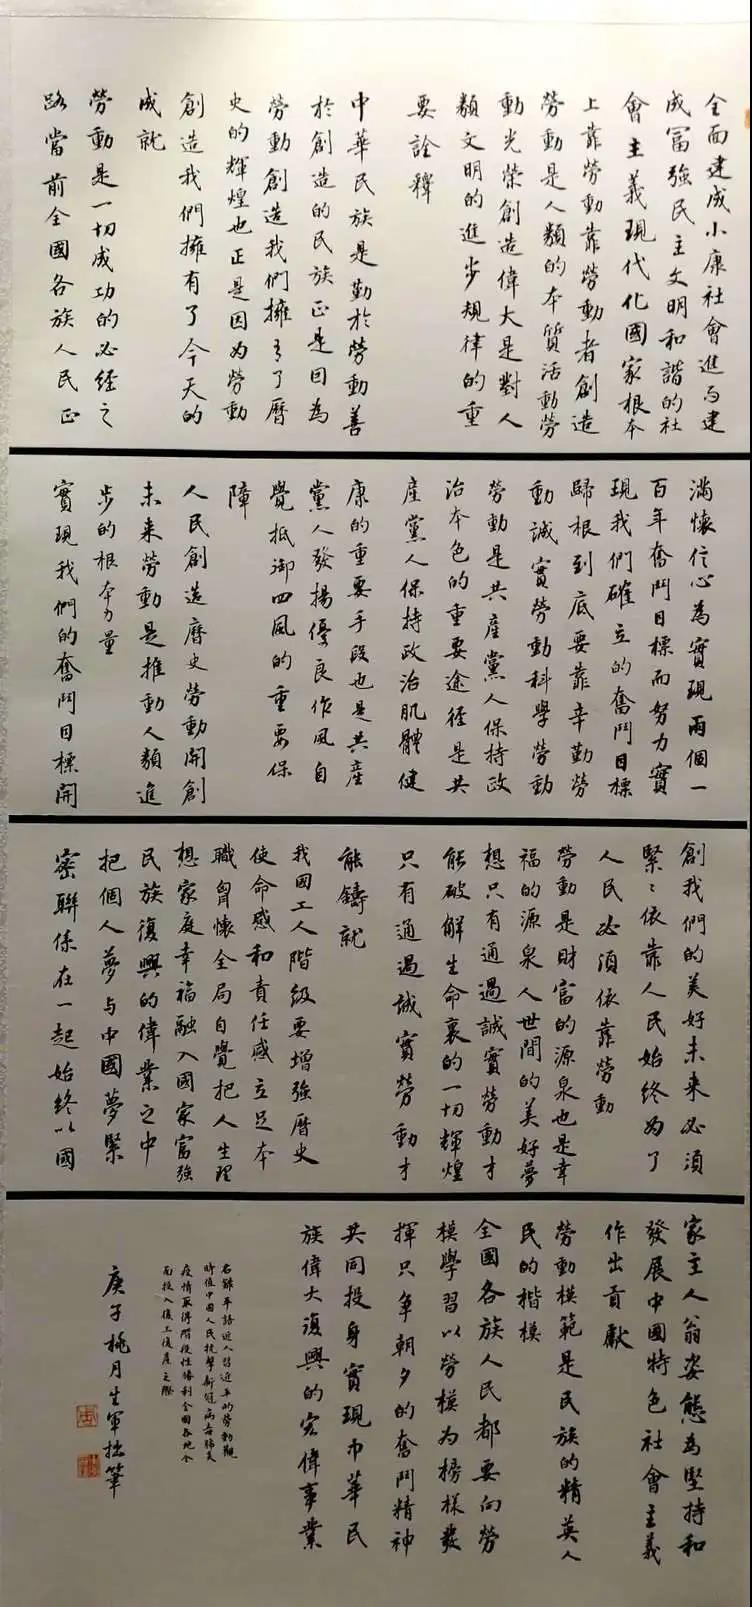 全面建成小康社會進而建
成富強民主文明和諧的社
會主義現代化國家根本
上靠勞動靠勞動者創造
勞動是人類的本質活動勞
動光榮創造偉大是對人
類文明的進步規律的重
要詮釋
中華民族是勤於勞動善
於創造的民族正是因為
勞動創造我們擁有了曆
史的輝煌也正是因为勞動
創造我們擁有了今天的
成就
勞動是一切成功的必經之
路當前全國各族人民正
滿懷信心為實現兩個一
百年奮鬥目標而努力實
現我們確立的奮鬥目標
歸根到底要靠辛勤勞
動誠實勞動科學勞動
勞動是共產黨人保持政
治本色的重要途徑是共
產黨人保持政治肌體健
康的重要手段也是共產
黨人發揚優良作風自
覺抵御四風的重要保
障
人民創造曆史勞動開創
未来勞動是推動人類進
步的根本力量
實現我們的奮鬥目標開
創我們的美好未来必須
緊緊依靠人民始終为了
人民必須依靠勞動
勞動是財富的源泉也是幸
福的源泉人世間的美好夢
想只有通過誠實勞動才
能破解生命裏的一切輝煌
只有通過誠實勞動才
能鑄就
我國工人階級要增強曆史
使命感和責任感立足本
職胷懷全局自覺把人生理
想家庭幸福融入國家富強
民族復興的偉業之中
把個人夢与中國夢緊
密聯係在一起始終以國
家主人翁姿態為堅持和
發展中國特色社會主義
作出貢獻
勞動模範是民族的精英人
民的楷模
全國各族人民都要向勞
模學習以勞模为榜様發
揮只争朝夕的奮鬥精神
共同投身實現中華民
族偉大復興的宏偉事業
右錄平語近人習近平的勞動觀
時值中國人民抗擊新冠病毒肺炎
疫情取得階段性勝利全國各地全
面投入復工復產之際
庚子桃月生軍拙筆